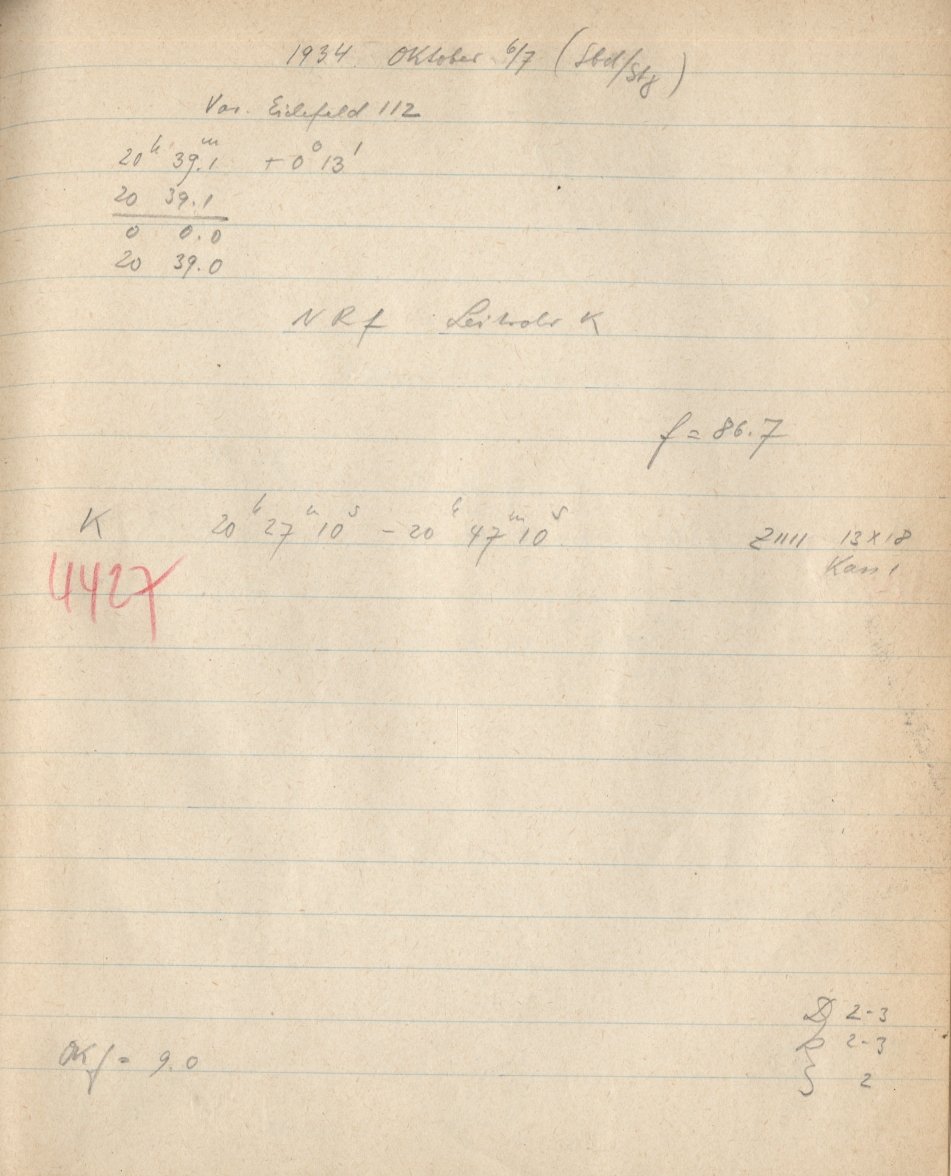 1934 Oktober 6/7 (Sbd/Stg)
Var. Eichsfeld 112
20ʰ 39.1ᵐ + 0° 13'
20 39.1
0 0.0
20 39.0
N R f Leitrohr K
f = 86.7
K 20ʰ 27ᵐ 10ˢ - 20ʰ 47ᵐ 10ˢ Z1111 13x18
Kass 1
4427
D 2-3
2-3
OKf = 9.0
S 2